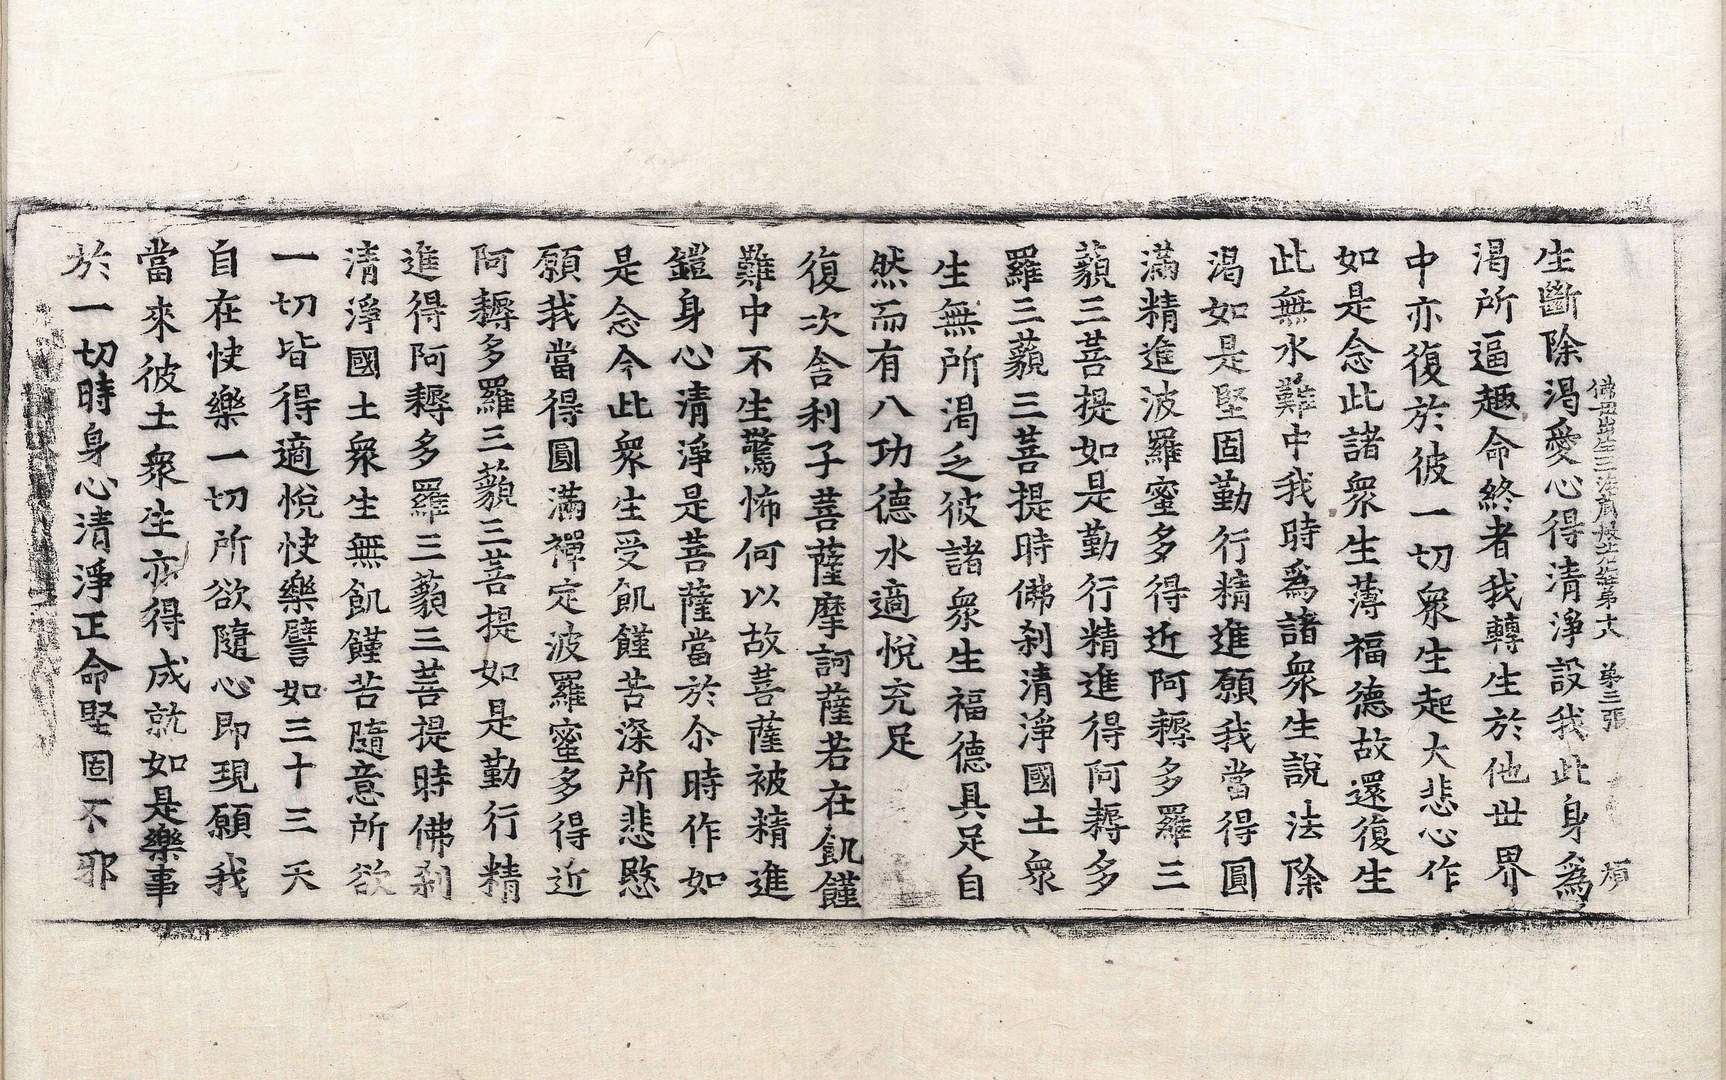 佛母出生三法藏般若經第十八 第三張
生斷除渴愛心得清淨設我此身爲
渴所逼趣命終者我轉生於他世界
中亦復於彼一切衆生起大悲心作
如是念此諸衆生薄福德故還復生
此無水難中我時爲諸衆生說法除
渴如是堅固勤行精進願我當得圓
滿精進波羅蜜多得近阿耨多羅三
藐三菩提如是勤行精進得阿耨多
羅三藐三菩提時佛刹清淨國土衆
生無所渴乏彼諸衆生福德具足自
然而有八功德水適悅充足
復次舍利子菩薩摩訶薩若在飢饉
難中不生驚怖何以故菩薩被精進
鎧身心清淨是菩薩當於尒時作如
是念今此衆生受飢饉苦深所悲愍
願我當得圓滿禪定波羅蜜多得近
阿耨多羅三藐三菩提如是勤行精
進得阿耨多羅三藐三菩提時佛刹
清淨國土衆生無飢饉苦隨意所欲
一切皆得適悅快樂譬如三十三天
自在快樂一切所欲隨心即現願我
當來彼土衆生亦得成就如是樂事
於一切時身心清淨正命堅固不邪